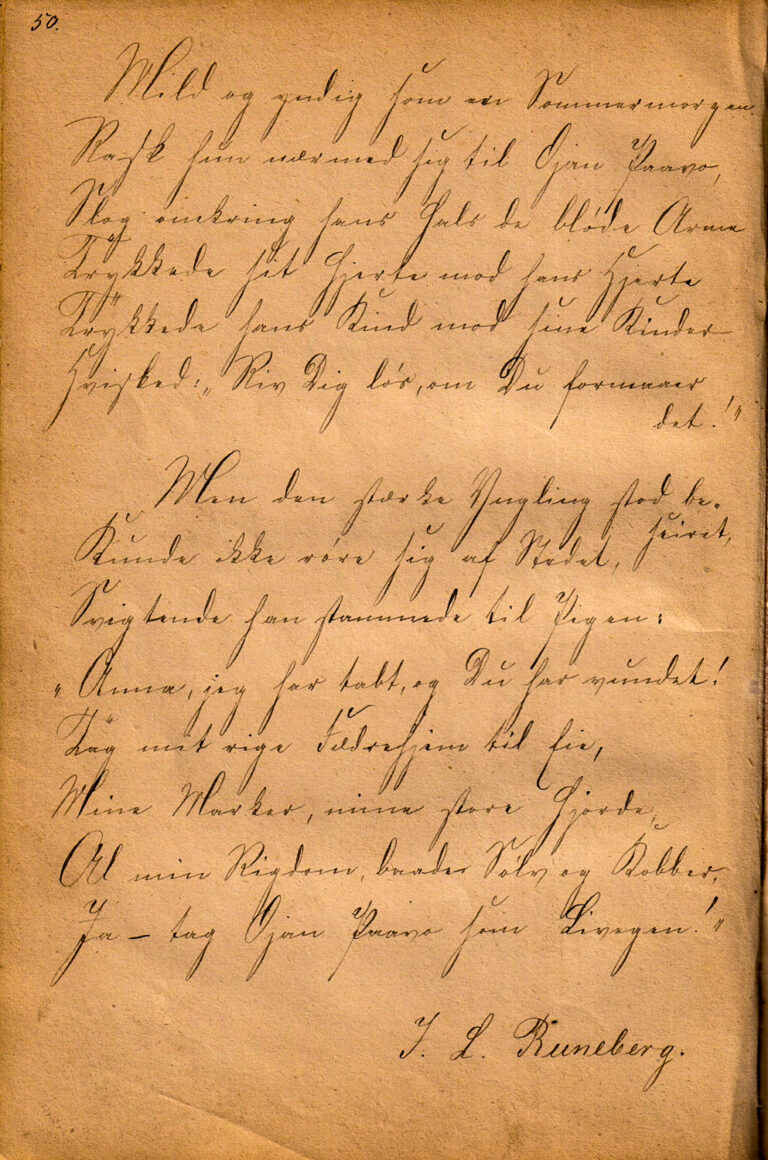 50.
Mild og yndig som en Sommermorgen
Rask hun nærmed sig til Ojan Paavo,
Slog omkring hans Hals de bløde Arme
Trykkede sit Hjerte mod hans Hjerte
Trykkede hans Kind mod sine Kinder
Hvisked: „Riv Dig løs, om Du formaaer
det!"
Men den stærke Yngling stod be-
seiret,
Kunde ikke røre sig af Stedet,
Svigtende han stammede til Pigen:
„Anna, jeg har tabt, og Du har vundet!
Tag mit rige Fædrehjem til Eie,
Mine Marker, mine store Hjorde,
Al min Rigdom, baade Sølv og Kobber,
Ja – tag Ojan Paavo som Livegen!"
J. L. Runeberg.